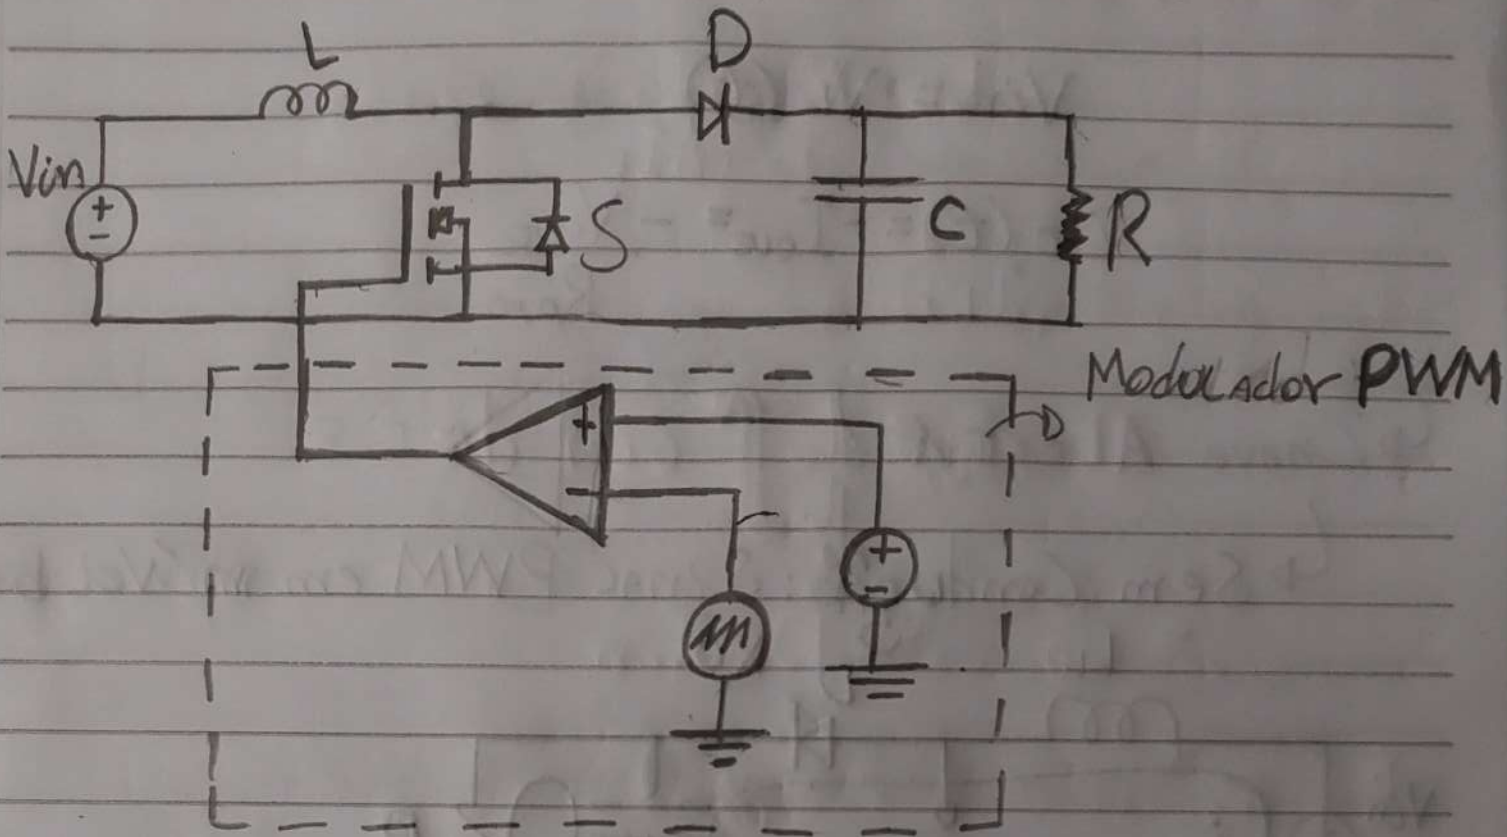 L
D
Vin
+
-
S
C
R
Modulador PWM
+
-
+
-